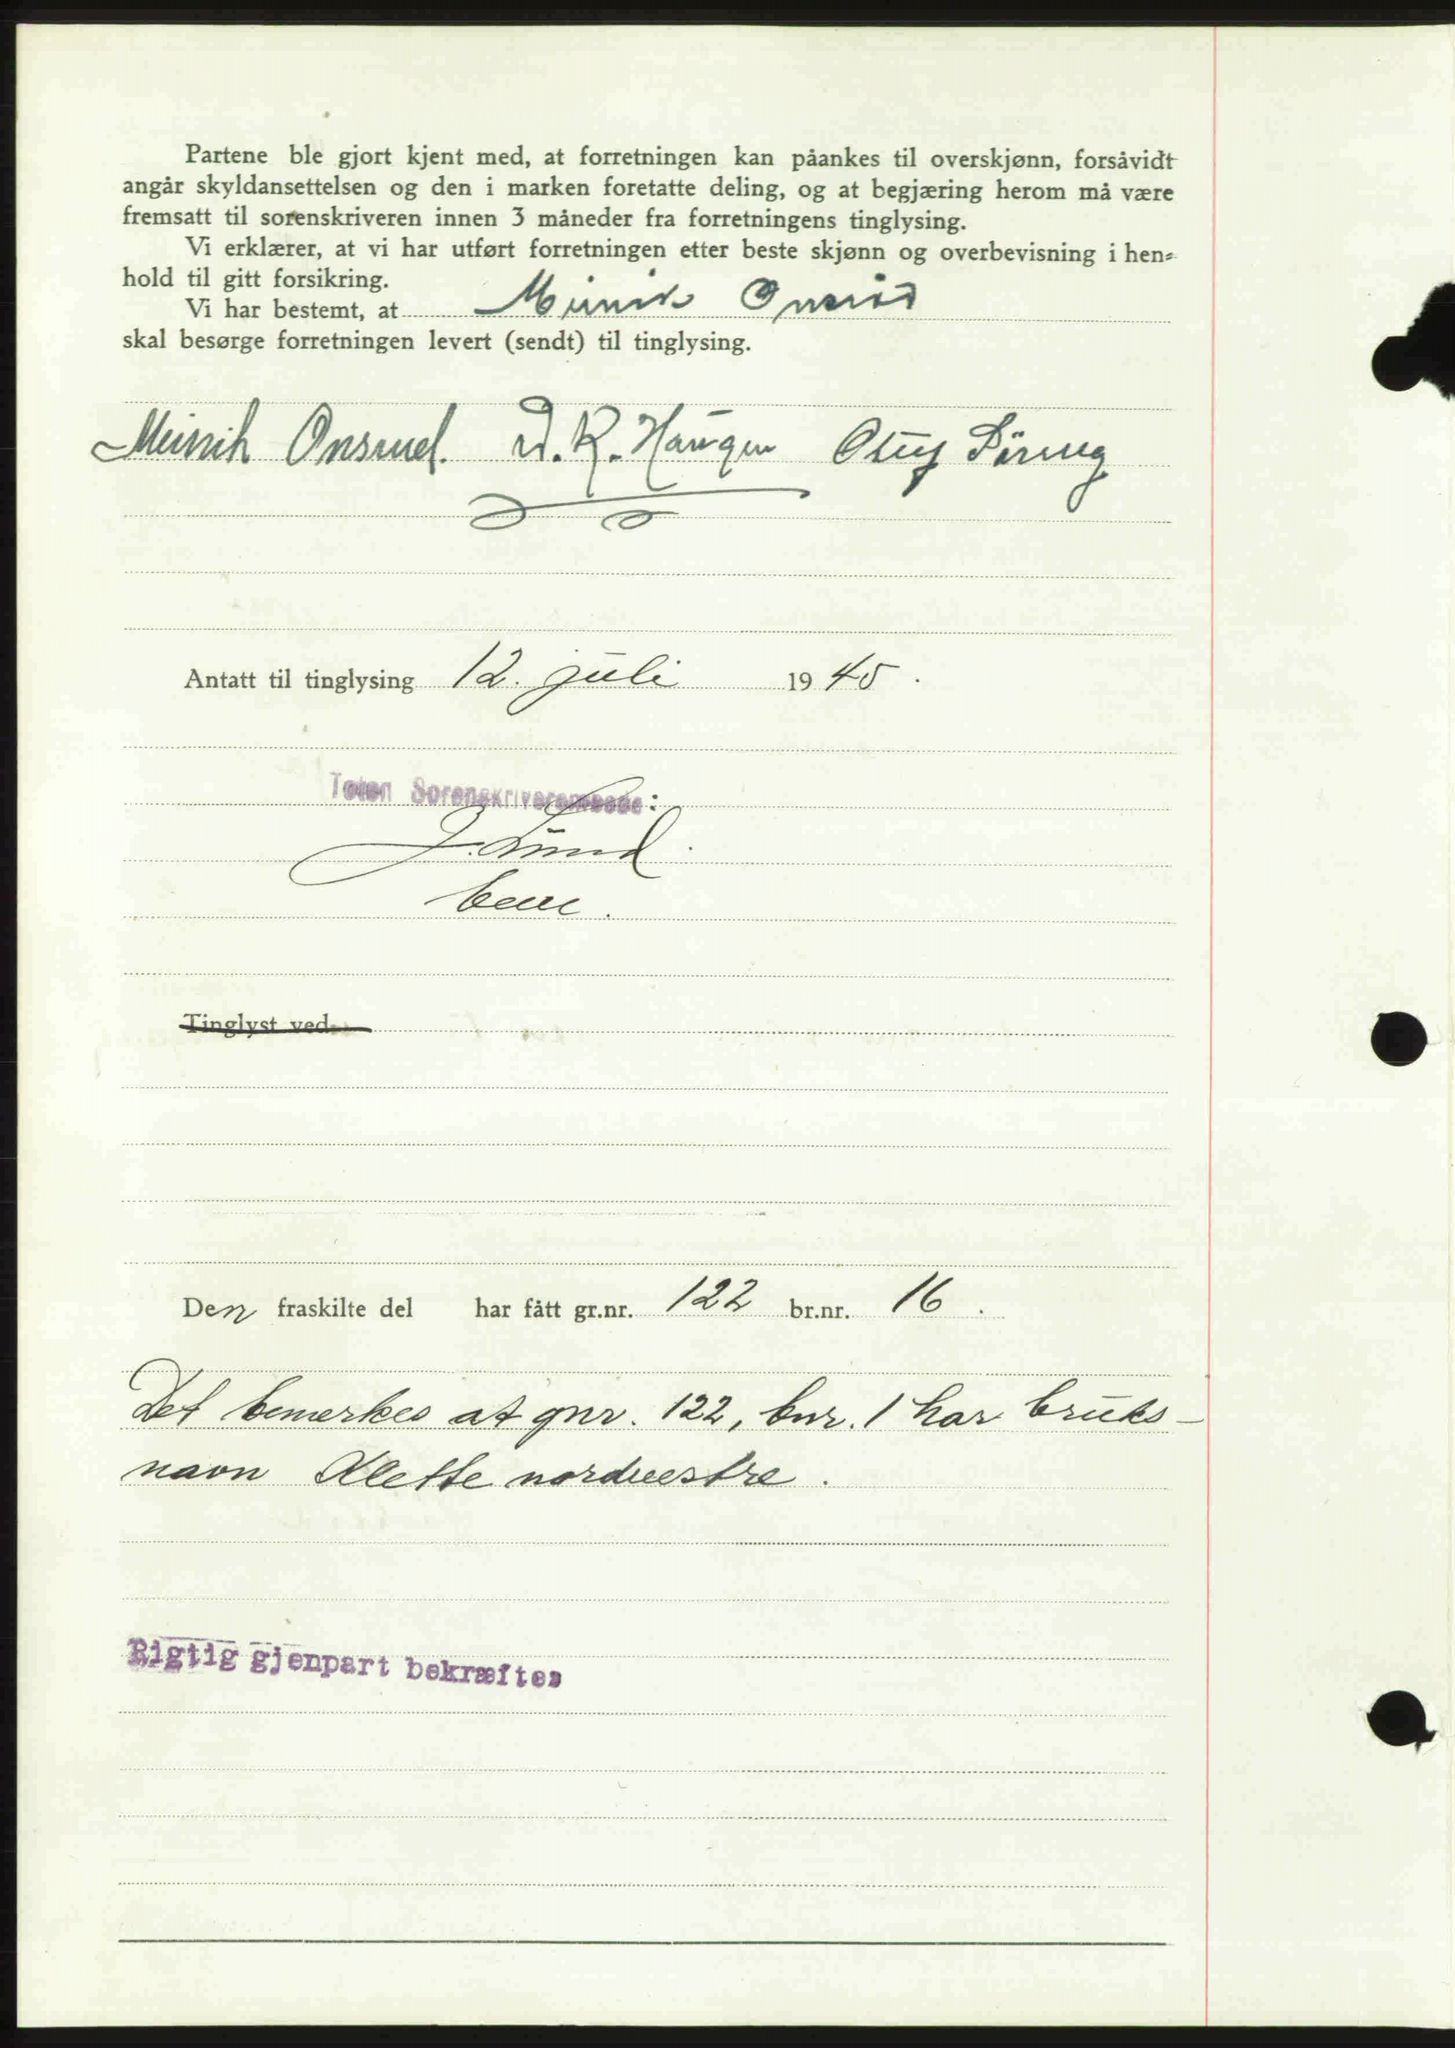 Partene ble gjort kjent med, at forretningen kan påankes til overskjønn, forsåvidt
angår skyldansettelsen og den i marken foretatte deling, og at begjæring herom må være
fremsatt til sorenskriveren innen 3 måneder fra forretningens tinglysing.
Vi erklærer, at vi har utført forretningen etter beste skjønn og overbevisning i hen-
hold til gitt forsikring.
Vi har bestemt, at
skal besørge forretningen levert (sendt) til tinglysing.
Onsrud. K. Haugen
Antatt til tinglysing 12. juli 1945.
Toten Sorenskriverembede:
J. Lund.
bem.
Tinglyst ved
Den fraskilte del har fått gr.nr. 122 br.nr. 16.
Det bemerkes at gnr. 122, bnr. 1 har bruks-
navn Klette nordvestre.
Rigtig gjenpart bekræftes